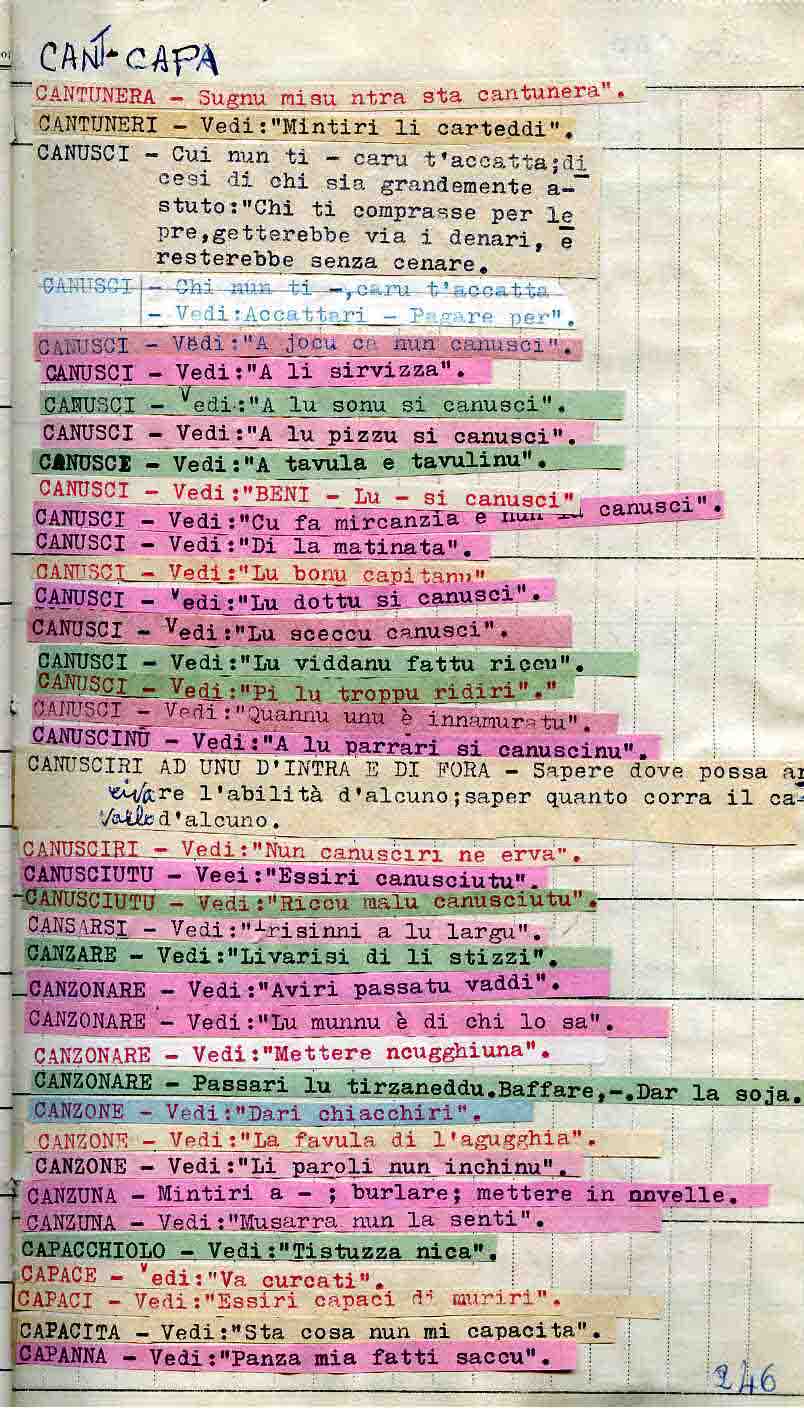 CANT-CAPA
CANTUNERA - Sugnu misu ntra sta cantunera".
CANTUNERI - Vedi:"Mintiri li carteddi".
CANUSCI - Cui nun ti - caru t'accatta;di
cesi di chi sia grandemente a-
stuto:"Chi ti comprasse per le
pre,getterebbe via i denari, e
resterebbe senza cenare.
CANUSCI - Chi nun ti -,caru t'accatta
- Vedi:Accattari - Pagare per".
CANUSCI - Vedi:"A jocu ca nun canusci".
CANUSCI - Vedi:"A li sirvizza".
CANUSCI - Vedi:"A lu sonu si canusci".
CANUSCI - Vedi:"A lu pizzu si canusci".
CANUSCI - Vedi:"A tavula e tavulinu".
CANUSCI - Vedi:"BENI - Lu - si canusci"
CANUSCI - Vedi:"Cu fa mircanzia e nun la canusci".
CANUSCI - Vedi:"Di la matinata".
CANUSCI - Vedi:"Lu bonu capitanu"
CANUSCI - Vedi:"Lu dottu si canusci".
CANUSCI - Vedi:"Lu sceccu canusci".
CANUSCI - Vedi:"Lu viddanu fattu riccu".
CANUSCI - Vedi:"Pi lu troppu ridiri"."
CANUSCI - Vedi:"Quannu unu è innamuratu".
CANUSCINU - Vedi:"A lu parrari si canuscinu".
CANUSCIRI AD UNU D'INTRA E DI FORA - Sapere dove possa ar
rivare l'abilità d'alcuno;saper quanto corra il ca-
vallo d'alcuno.
CANUSCIRI - Vedi:"Nun canusciri ne erva".
CANUSCIUTU - Veei:"Essiri canusciutu".
CANUSCIUTU - Vedi:"Riccu malu canusciutu".
CANSARSI - Vedi:"Trisinni a lu largu".
CANZARE - Vedi:"Livarisi di li stizzi".
CANZONARE - Vedi:"Aviri passatu vaddi".
CANZONARE - Vedi:"Lu munnu è di chi lo sa".
CANZONARE - Vedi:"Mettere ncugghiuna".
CANZONARE - Passari lu tirzaneddu.Baffare,-.Dar la soja.
CANZONE - Vedi:"Dari chiacchiri".
CANZONE - Vedi:"La favula di l'agugghia".
CANZONE - Vedi:"Li paroli nun inchinu".
CANZUNA - Mintiri a - ; burlare; mettere in novelle.
CANZUNA - Vedi:"Musarra nun la senti".
CAPACCHIOLO - Vedi:"Tistuzza nica".
CAPACE - Vedi:"Va curcati".
CAPACI - Vedi:"Essiri capaci di muriri".
CAPACITA - Vedi:"Sta cosa nun mi capacita".
CAPANNA - Vedi:"Panza mia fatti saccu".
246